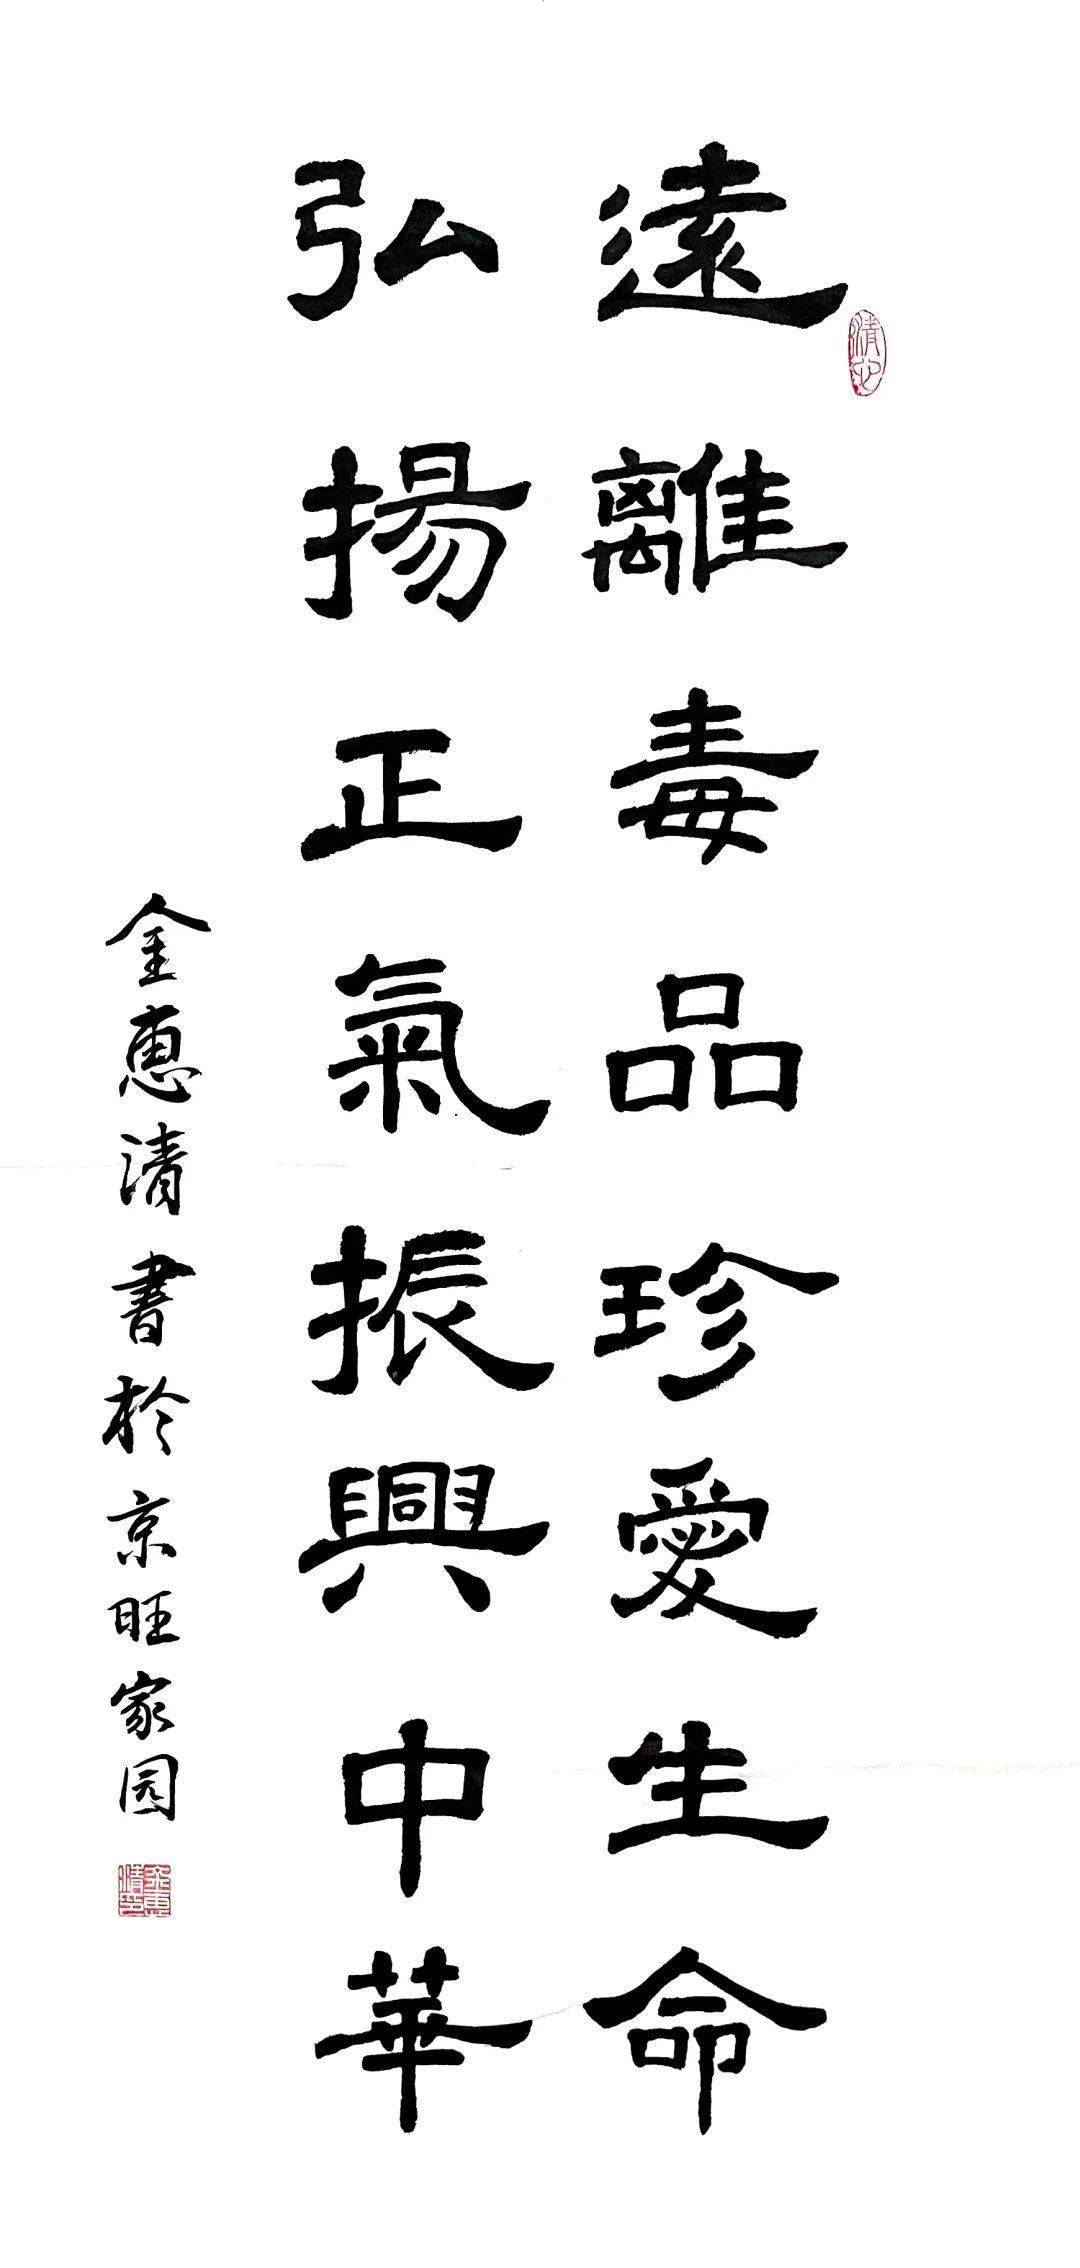 遠離毒品珍愛生命
弘揚正氣振興中華
金惠清書於京旺家园
清心
金惠清印